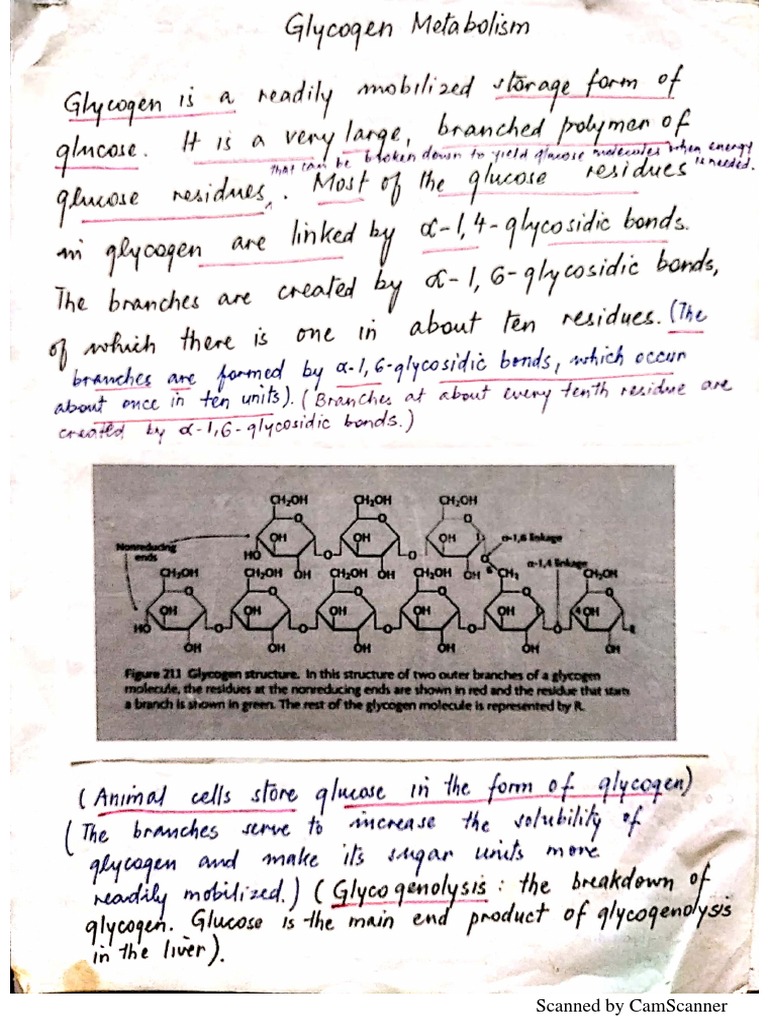 Glycogen Metabolism
Glycogen is a readily mobilized storage form of
glucose. It is a very large, branched polymer of
that can be broken down to yield glucose molecules when energy is needed.
glucose residues. Most of the glucose residues
in glycogen are linked by α-1,4-glycosidic bonds.
The branches are created by α-1,6-glycosidic bonds,
of which there is one in about ten residues. (The
branches are formed by α-1,6-glycosidic bonds, which occur
about once in ten units). (Branches at about every tenth residue are
created by α-1,6-glycosidic bonds.)
CH₂OH CH₂OH CH₂OH
O O O
Nonreducing ends
OH OH OH
α-1,6 linkage
HO O O O
α-1,4 linkage
OH OH OH
CH₂OH CH₂OH CH₂OH CH₂OH CH₂ CH₂OH
O O O O O O
OH OH OH OH OH OH
HO O O O O O R
OH OH OH OH OH OH
Figure 21.1 Glycogen structure. In this structure of two outer branches of a glycogen
molecule, the residues at the nonreducing ends are shown in red and the residue that starts
a branch is shown in green. The rest of the glycogen molecule is represented by R.
(Animal cells store glucose in the form of glycogen)
(The branches serve to increase the solubility of
glycogen and make its sugar units more
readily mobilized.) (Glycogenolysis: the breakdown of
glycogen. Glucose is the main end product of glycogenolysis
in the liver).
Scanned by CamScanner